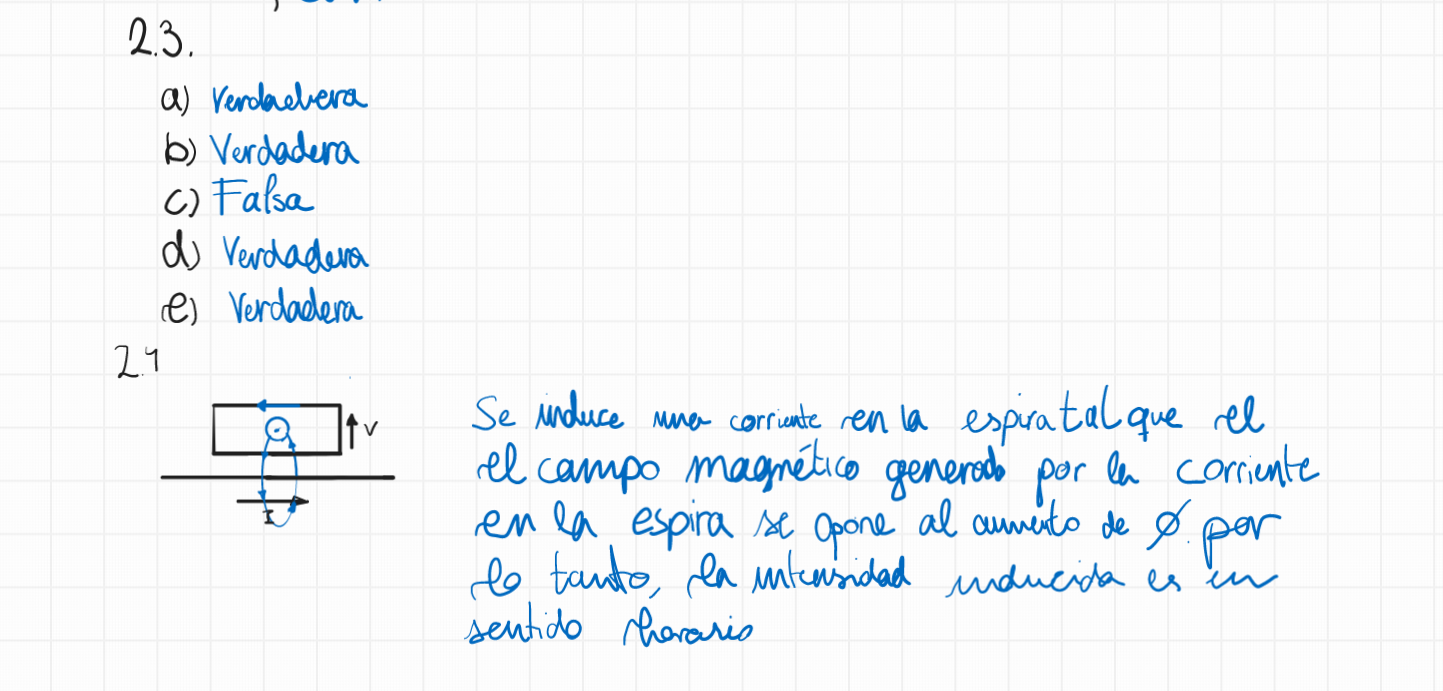 2.3.
a) Verdadera
b) Verdadera
c) Falsa
d) Verdadera
e) Verdadera
2.4
V
I
Se induce una corriente en la espira tal que el
el campo magnético generado por la corriente
en la espira se opone al aumento de Ø. por
lo tanto, la intensidad inducida es en
sentido horario